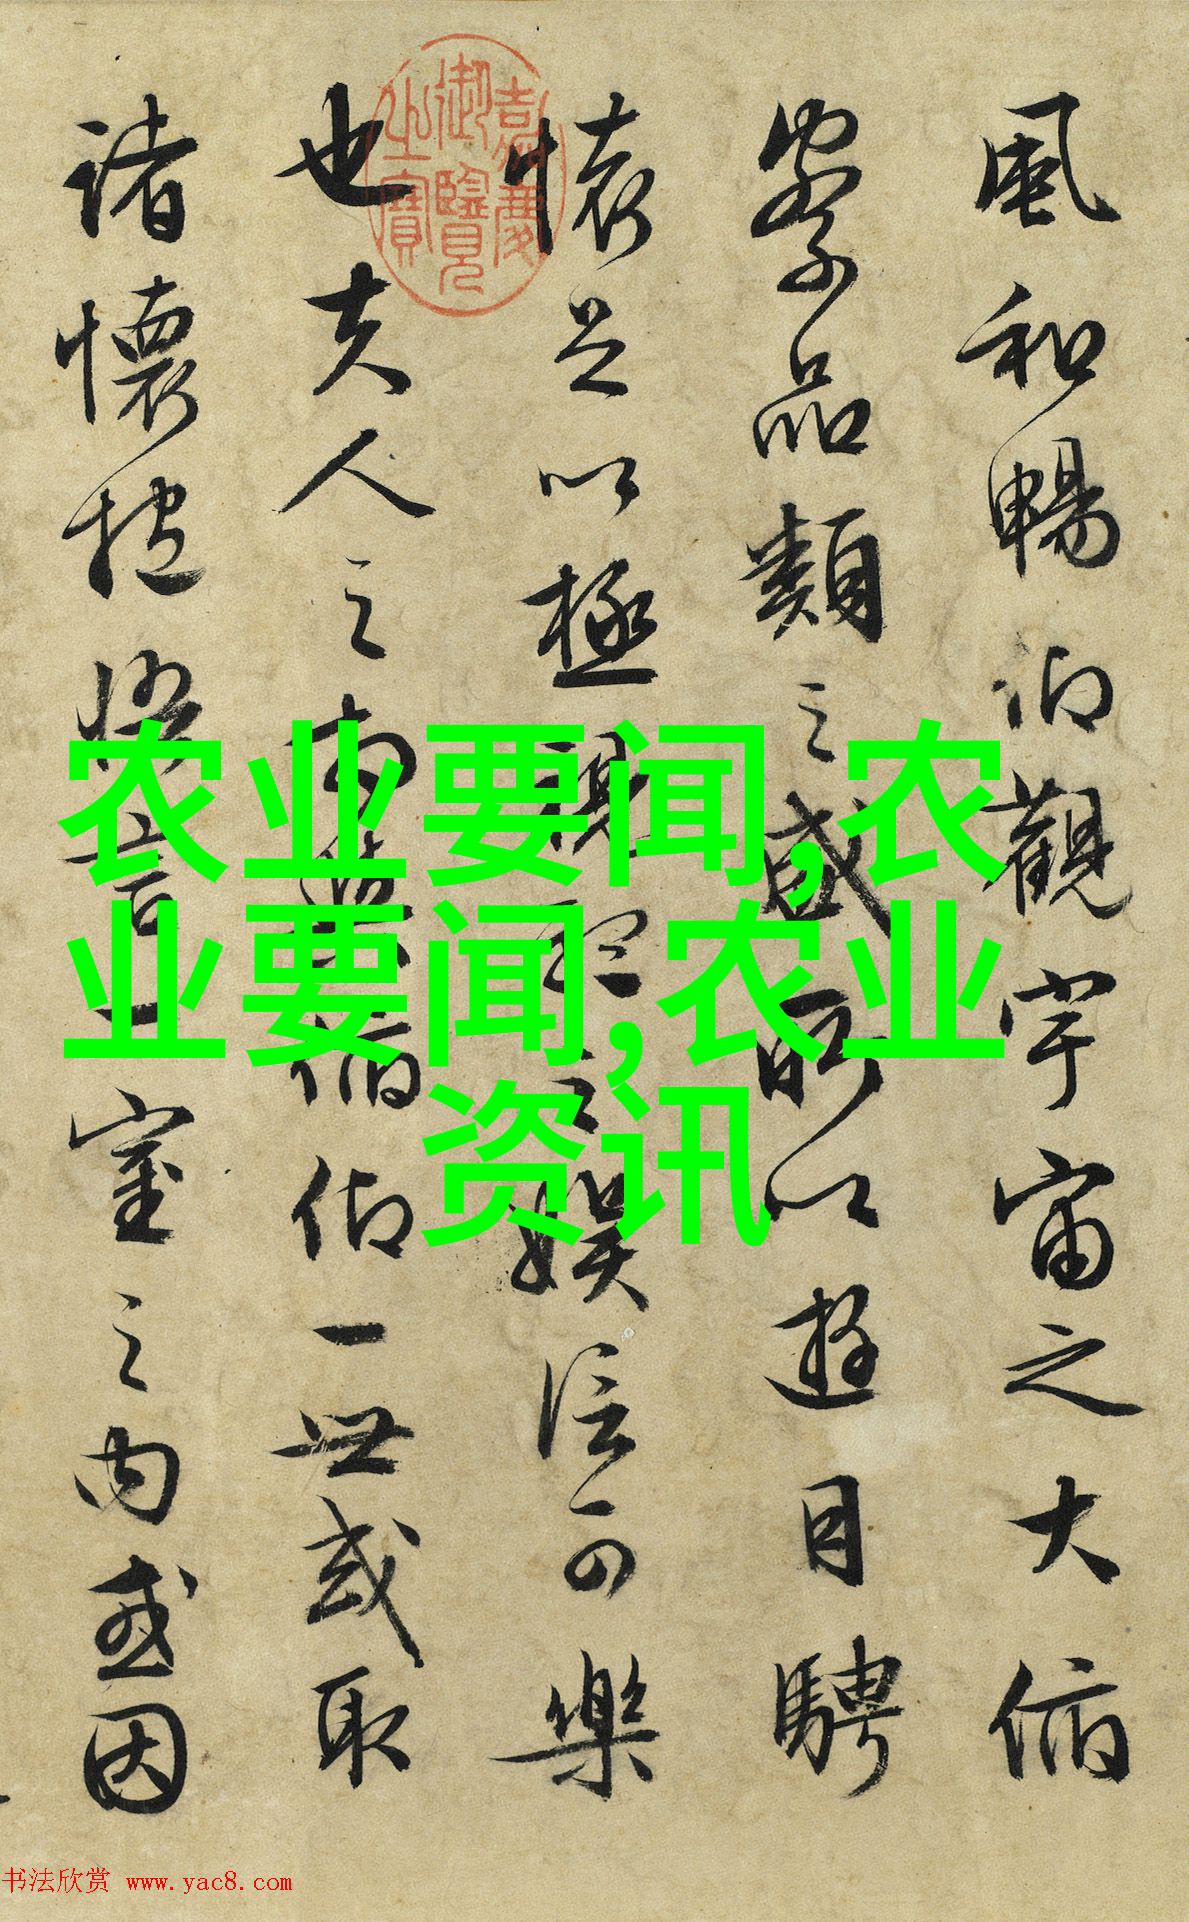 風和暢仰觀宇宙之大俯
察品類之盛所以遊目騁
懷足以極視聽之娛信可樂
也夫人之相與俯仰一世或取
諸懷抱悟言一室之內或因
嘉慶御覽之寶
农业要闻,农
业要闻,农业
资讯
书法欣赏 www.yac8.com